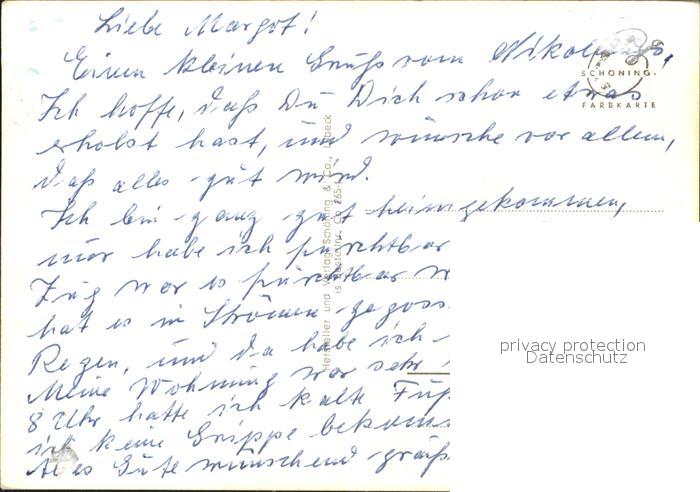 Liebe Margot!
Einen kleinen Gruß vom Nikolaus,
Ich hoffe, daß Du Dich schon etwas
erholst hast, und wünsche vor allem,
daß alles gut wird.
Ich bin ganz gut heimgekommen,
nur habe ich furchtbar
Zug war es furchtbar
hat es in Strömen gegoss
Regen, und da habe ich
Meine Wohnung war sehr
8 Uhr hatte ich kalte Füß
ich keine Grippe bekomm
Alles Gute wünschend grüß
SCHÖNING
FARBKARTE
Hersteller und Verlag Schöning & Co., Lübeck
privacy protection
Datenschutz